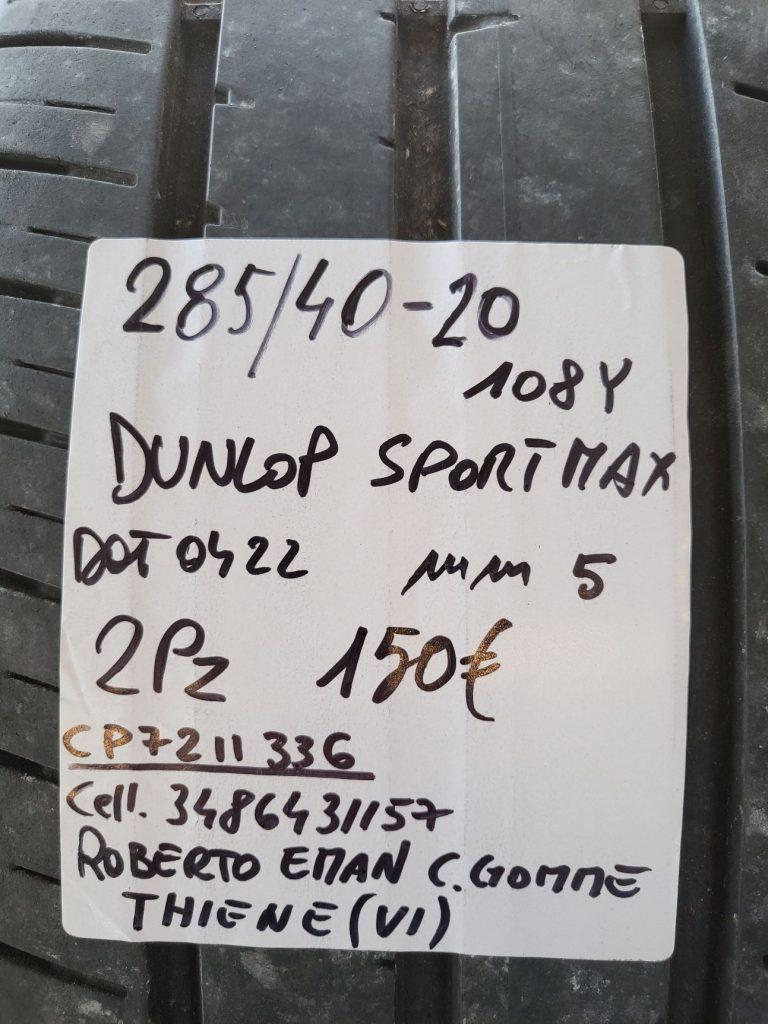 285/40-20
108Y
DUNLOP SPORTMAX
DOT0422 mm 5
2Pz 150€
CP7211336
Cell. 3486431157
ROBERTO EMAN C. GOMME
THIENE (VI)